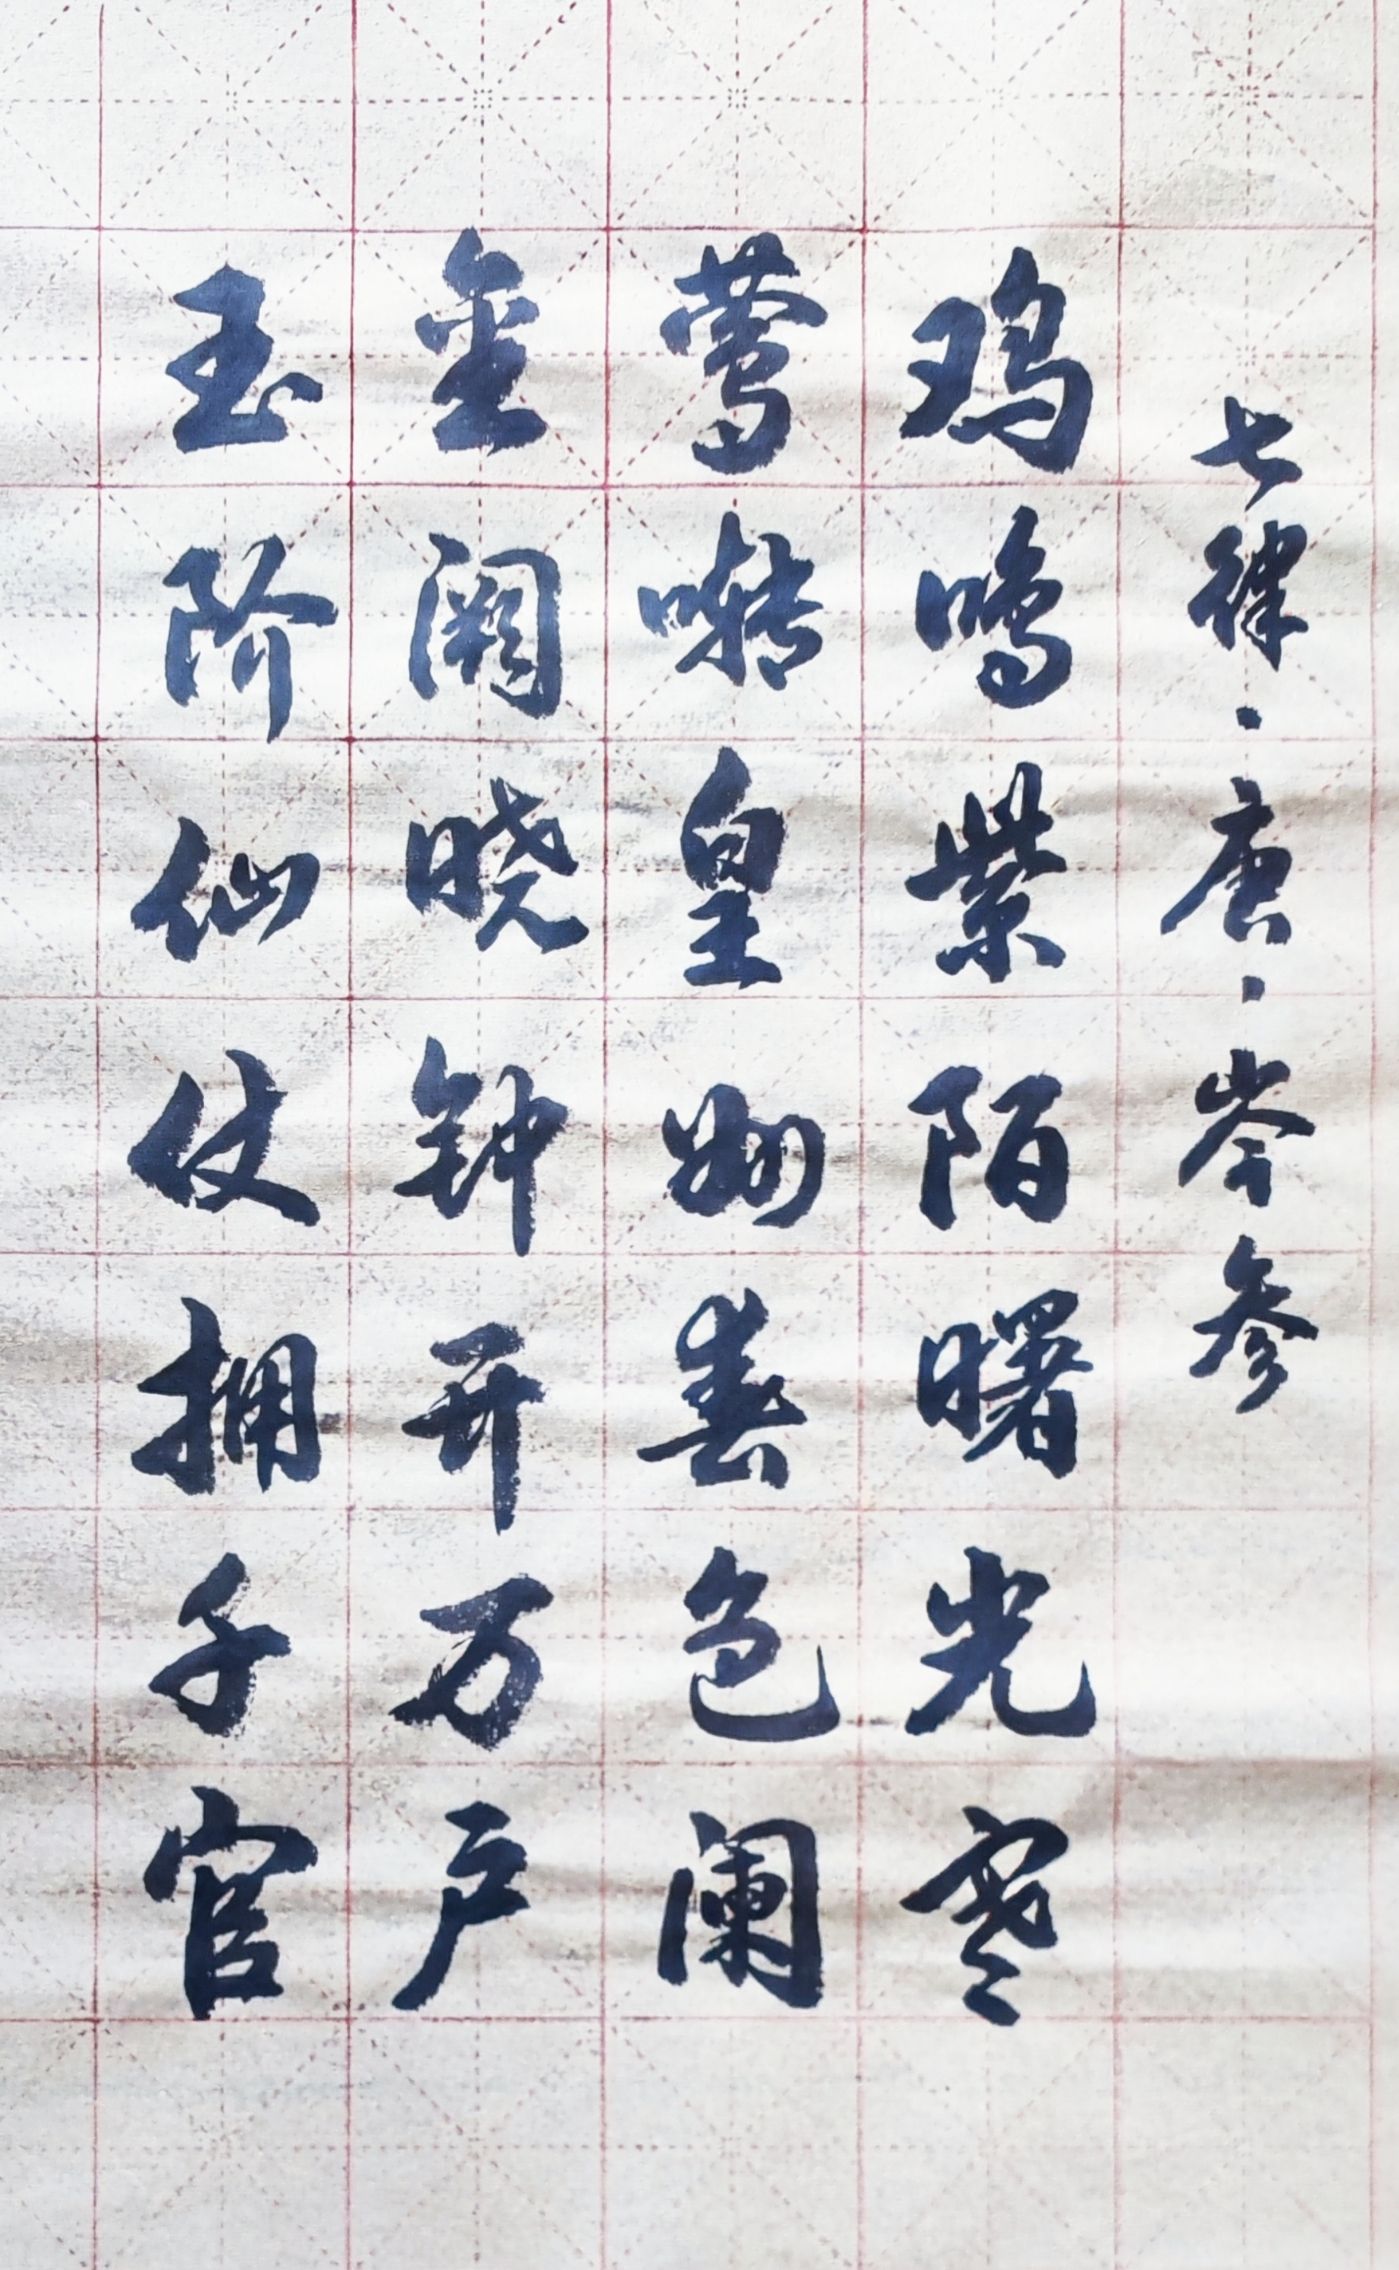 七律·唐·岑参
鸡鸣紫陌曙光寒
莺啭皇州春色阑
金阙晓钟开万户
玉阶仙仗拥千官